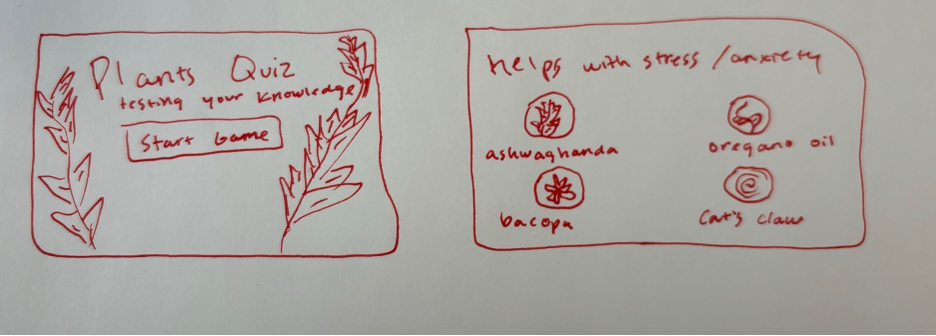 Plants Quiz
testing your knowledge
Start Game
Helps with stress/anxiety
ashwaghanda
oregano oil
bacopa
Cat's claw